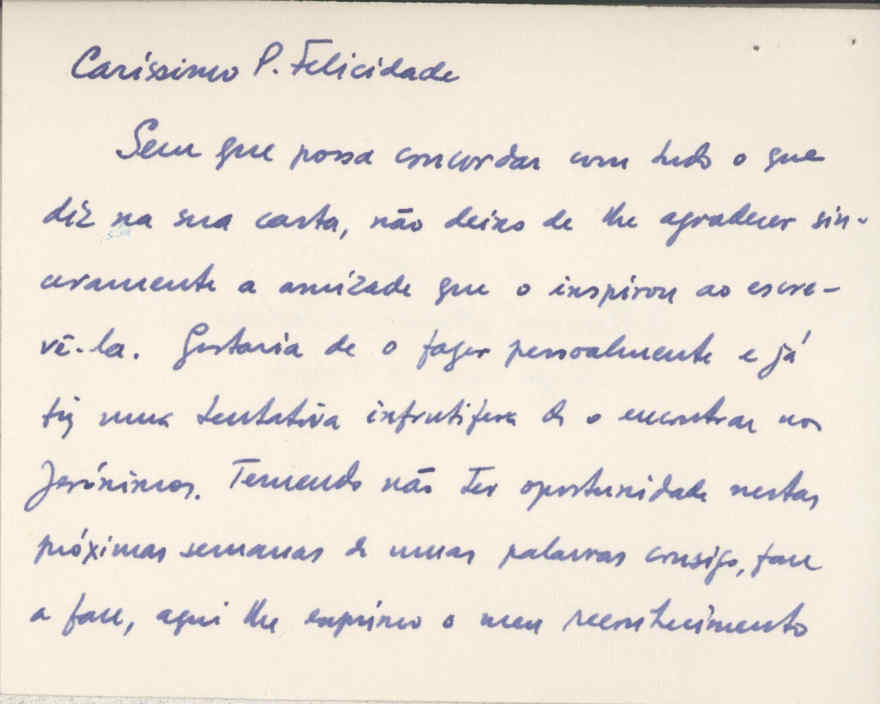 Caríssimo P. Felicidade
Sem que possa concordar com tudo o que
diz na sua carta, não deixo de lhe agradecer sin-
ceramente a amizade que o inspirou ao escre-
vê-la. Gostaria de o fazer pessoalmente e já
fiz uma tentativa infrutífera de o encontrar nos
Jerónimos. Temendo não ter oportunidade nestas
próximas semanas de umas palavras consigo, face
a face, aqui lhe exprimo o meu reconhecimento